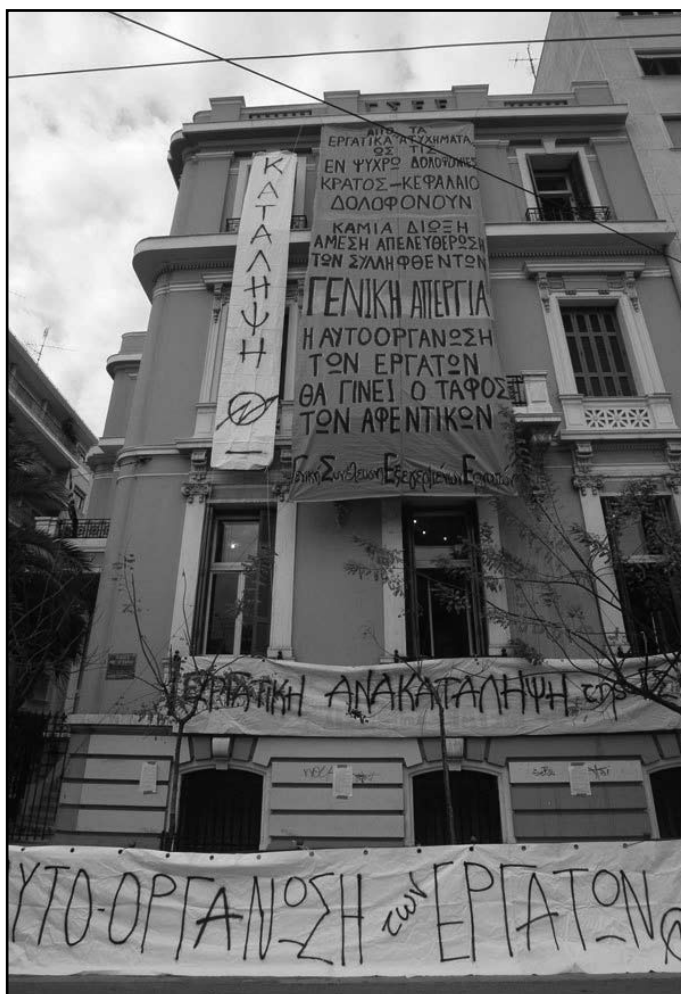 ΚΑΤΑΛΗΨΗ
ΑΠΟ ΤΑ
ΕΡΓΑΤΙΚΑ ΑΤΥΧΗΜΑΤΑ
ΩΣ ΤΙΣ
ΕΝ ΨΥΧΡΩ ΔΟΛΟΦΟΝΙΕΣ
ΚΡΑΤΟΣ-ΚΕΦΑΛΑΙΟ
ΔΟΛΟΦΟΝΟΥΝ
ΚΑΜΙΑ ΔΙΩΞΗ
ΑΜΕΣΗ ΑΠΕΛΕΥΘΕΡΩΣΗ
ΤΩΝ ΣΥΛΛΗΦΘΕΝΤΩΝ
ΓΕΝΙΚΗ ΑΠΕΡΓΙΑ
Η ΑΥΤΟΟΡΓΑΝΩΣΗ
ΤΩΝ ΕΡΓΑΤΩΝ
ΘΑ ΓΙΝΕΙ Ο ΤΑΦΟΣ
ΤΩΝ ΑΦΕΝΤΙΚΩΝ
Γενική Συνέλευση Εξεγερμένων Εργατών
ΕΡΓΑΤΙΚΗ ΑΝΑΚΑΤΑΛΗΨΗ της
ΥΤΟ-ΟΡΓΑΝΩΣΗ των ΕΡΓΑΤΩΝ